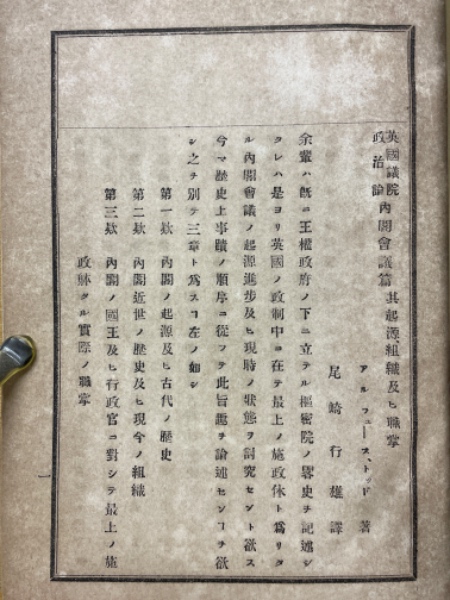 英國議院政治論 內閣會議篇 其起源、組織及ヒ職掌
アルフュース、トッド 著
尾崎行雄 譯
余輩ハ既ニ王權政府ノ下ニ立テル樞密院ノ畧史ヲ記述シ
タレハ是ヨリ英國ノ政制中ニ在テ最上ノ施政体ト爲リタ
ル內閣會議ノ起源進步及ヒ現時ノ狀態ヲ討究セント欲ス
今マ歷史上事蹟ノ順序ニ從フテ此旨趣ヲ論述センコヲ欲
シ之ヲ別テ三章ト爲スコ左ノ如シ
第一欵 內閣ノ起源及ヒ古代ノ歷史
第二欵 內閣近世ノ歷史及ヒ現今ノ組織
第三欵 內閣ノ國王及ヒ行政官ニ對シテ最上ノ施
政躰タル實際ノ職掌
一